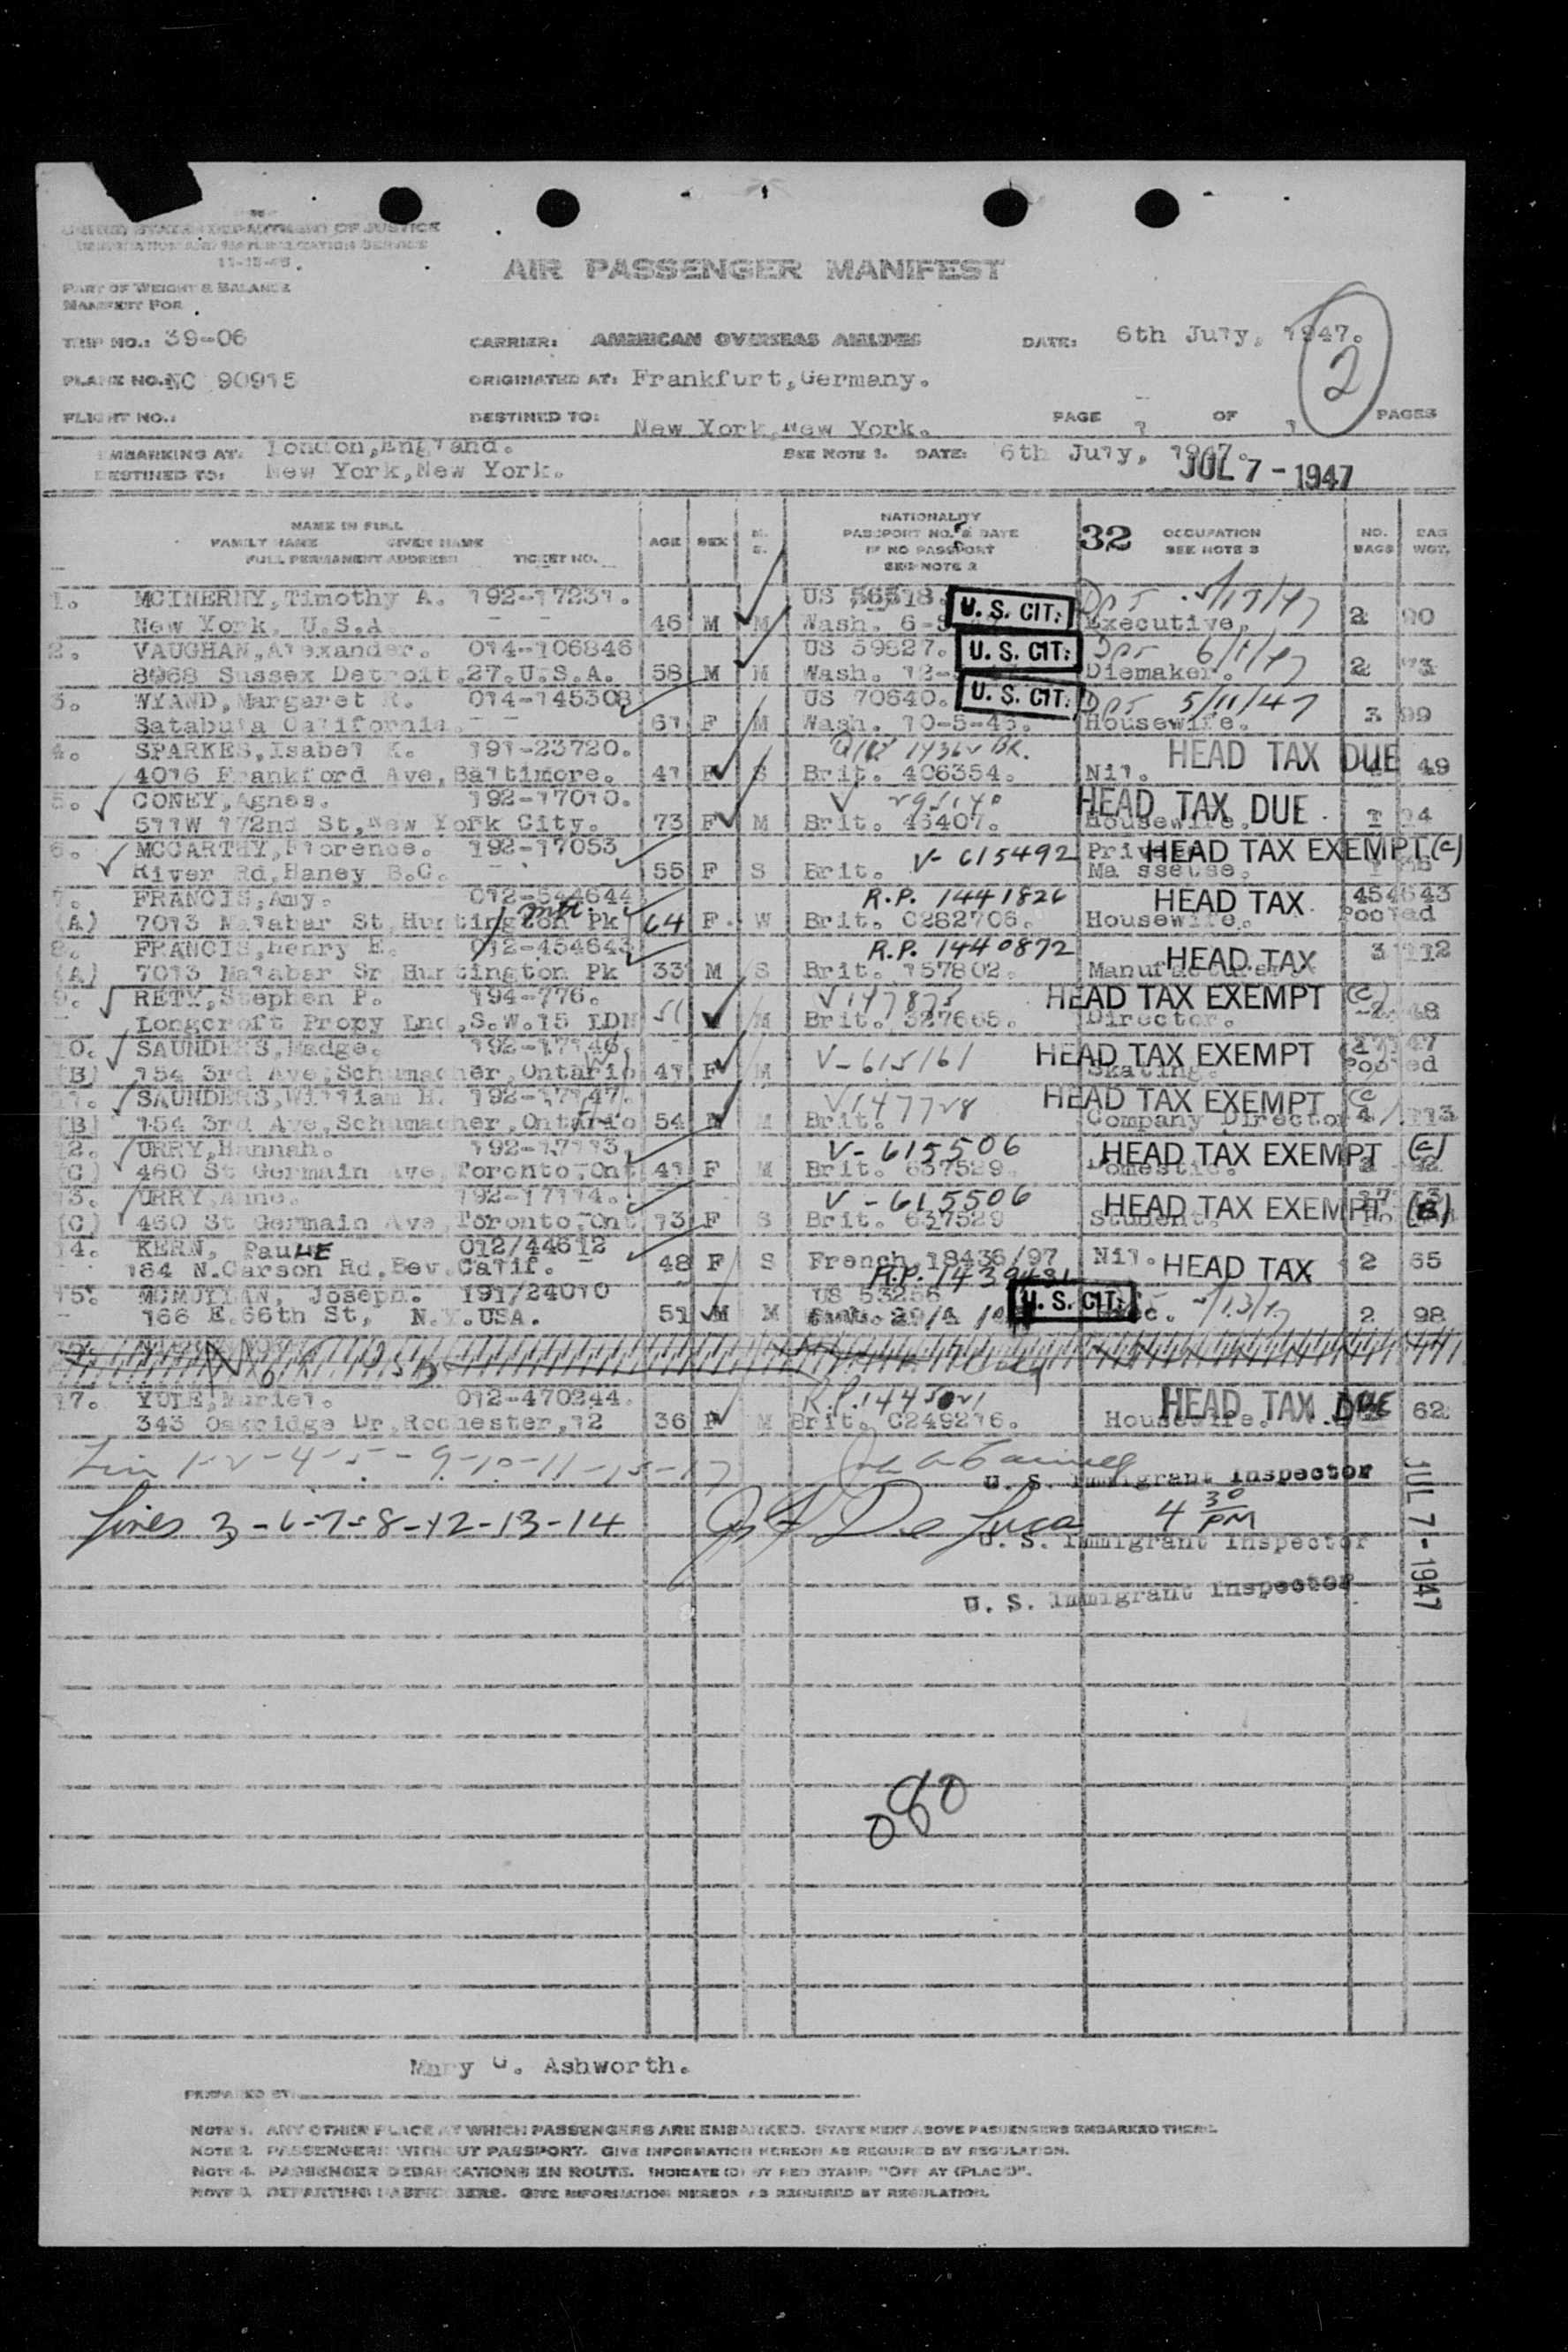 UNITED STATES DEPARTMENT OF JUSTICE
IMMIGRATION AND NATURALIZATION SERVICE
11-15-45.
AIR PASSENGER MANIFEST
PART OF WEIGHT & BALANCE
MANIFEST FOR
TRIP NO.: 39-06 CARRIER: AMERICAN OVERSEAS AIRLINES DATE: 6th July, 1947.
2
PLANE NO.: NC 90915 ORIGINATED AT: Frankfurt, Germany.
FLIGHT NO.: DESTINED TO: New York, New York. PAGE 1 OF 1 PAGES
EMBARKING AT: London, England. SEE NOTE 1. DATE: 6th July, 1947.
DESTINED TO: New York, New York. JUL 7 - 1947
NAME IN FULL
FAMILY NAME GIVEN NAME
FULL PERMANENT ADDRESS TICKET NO.
AGE SEX M. S.
NATIONALITY
PASSPORT NO. & DATE
IF NO PASSPORT
SEE NOTE 2
32 OCCUPATION
SEE NOTE 3
NO. BAGS BAG WGT.
1. MCINERNY, Timothy A. 192-17231. US 56518. U. S. CIT:
New York, U.S.A. 46 M M Wash. Executive. 2 90
2. VAUGHAN, Alexander. 014-106846 US 59827. U. S. CIT: 6/1/47
8968 Sussex Detroit, 27. U.S.A. 58 M M Wash. Diemaker. 2 73
3. WYAND, Margaret R. 014-145308 US 70640. U. S. CIT: 5/11/47
Satabula California. 61 F M Wash. 10-5-46. Housewife. 3 99
4. SPARKES, Isabel K. 191-23720. HEAD TAX DUE
4016 Frankford Ave, Baltimore. 41 F S Brit. 406354. Nil. 49
5. CONEY, Agnes. 192-17010. V 295140 HEAD TAX DUE
511W 172nd St, New York City. 73 F M Brit. 45407. Housewife. 1
6. MCCARTHY, Florence. 192-17053 V- 615492 HEAD TAX EXEMPT (C)
River Rd, Haney B.C. 55 F S Brit. Masseuse.
7. FRANCIS, Amy. 012-544644 R.P. 1441826 HEAD TAX 454643
(A) 7013 Malabar St, Huntington Pk 64 F W Brit. C282706. Housewife. Pooled
8. FRANCIS, Henry E. 012-454643 R.P. 1440872 HEAD TAX 3 112
(A) 7013 Malabar Sr Huntington Pk 33 M S Brit. 157802. Manufacturer.
9. RETY, Stephen P. 194-776. V 147873 HEAD TAX EXEMPT (C)
Longcroft Propy Lnd, S.W.15 LDN 51 M Brit. 327665. Director. 2 48
10. SAUNDERS, Madge. 192-17146. V-615161 HEAD TAX EXEMPT 17147
(B) 154 3rd Ave, Schumacher, Ontario 41 F M Skating. Pooled
11. SAUNDERS, William H. 192-17147. V147728 HEAD TAX EXEMPT (C
(B) 154 3rd Ave, Schumacher, Ontario 54 M M Brit. Company Director 4 113
12. URRY, Hannah. 192-17113. V- 615506 HEAD TAX EXEMPT (C)
(C) 460 St Germain Ave, Toronto, Ont 41 F M Brit. 637529. Domestic.
13. URRY, Anne. 192-17114. V - 615506 HEAD TAX EXEMPT (B)
(C) 460 St Germain Ave, Toronto, Ont 13 F S Brit. 637529 Student.
14. KERN, PaulLE 012/44612
184 N. Carson Rd, Bev. Calif. 48 F S French 18436/97 Nil. HEAD TAX 2 65
R.P. 1439431
15. MCMULLAN, Joseph. 191/24010 US 53256 U. S. CIT:
166 E.66th St, N.Y. USA. 51 M M 2 98
17. YUILE, Muriel. 012-470244. R.P. 1445021 HEAD TAX DUE
343 Oakridge Dr, Rochester, 12 36 F M Brit. C249216. Housewife. 62
Lin 1-2-4-5-9-10-11-15-17
U. S. Immigrant Inspector
Lines 3-6-7-8-12-13-14 De Luca 4 30 PM
U. S. Immigrant Inspector
JUL 7 - 1947
U. S. Immigrant Inspector
080
Mary G. Ashworth.
PREPARED BY
NOTE 1. ANY OTHER PLACE AT WHICH PASSENGERS ARE EMBARKED. STATE NEXT ABOVE PASSENGERS EMBARKED THERE.
NOTE 2. PASSENGERS WITHOUT PASSPORT. GIVE INFORMATION HEREON AS REQUIRED BY REGULATION.
NOTE 4. PASSENGER DEBARKATIONS EN ROUTE. INDICATE (D) BY RED STAMP. "OFF AT (PLACE)".
NOTE 3. DEPARTING PASSENGERS. GIVE INFORMATION HEREON AS REQUIRED BY REGULATION.